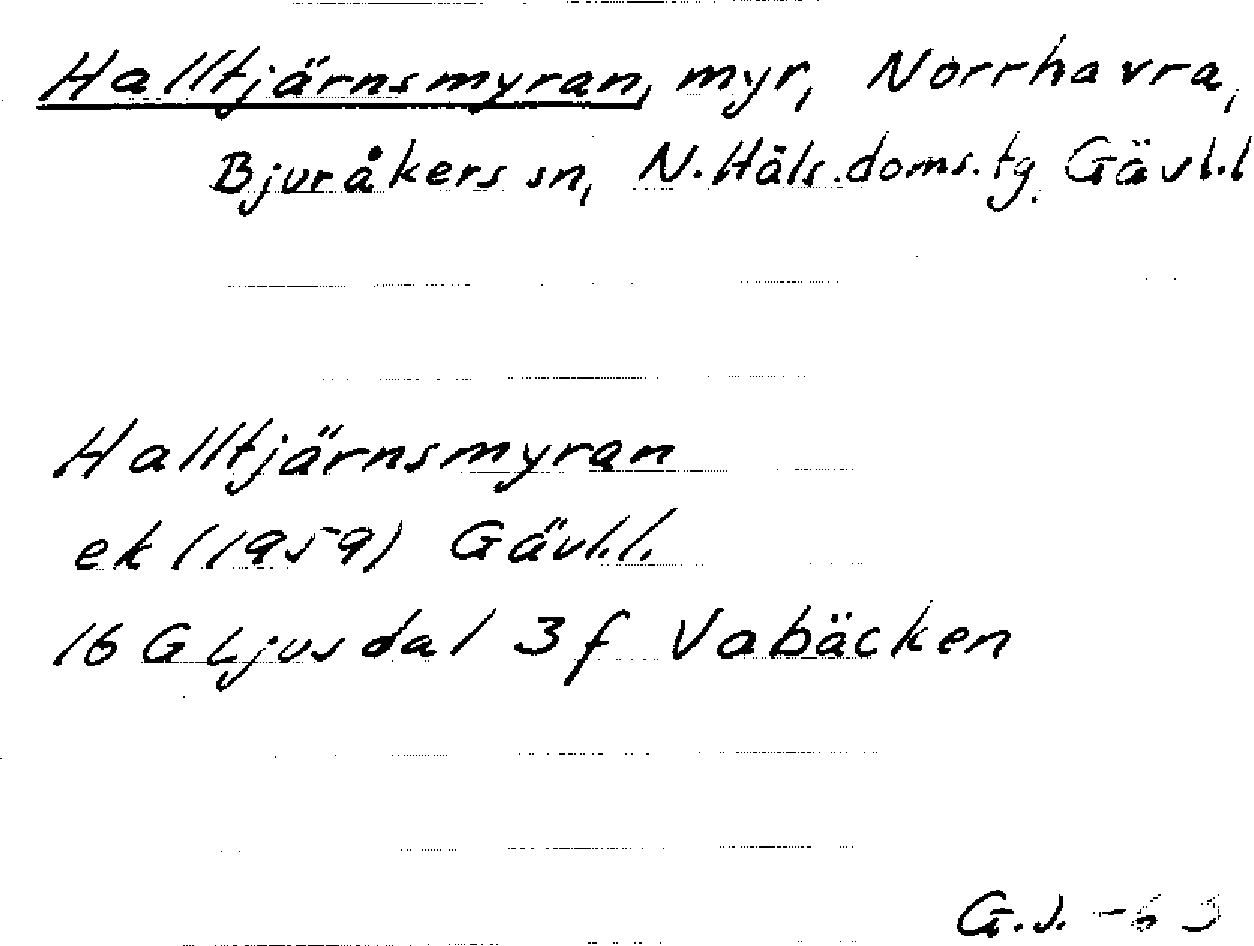 Halltjärnsmyran, myr, Norrhavra,
Bjuråkers sn, N.Häls.doms.tg. Gävl.l
Halltjärnsmyran
ek (1959) Gävl.l.
16 G Ljusdal 3 f Vabäcken
G.J. -63